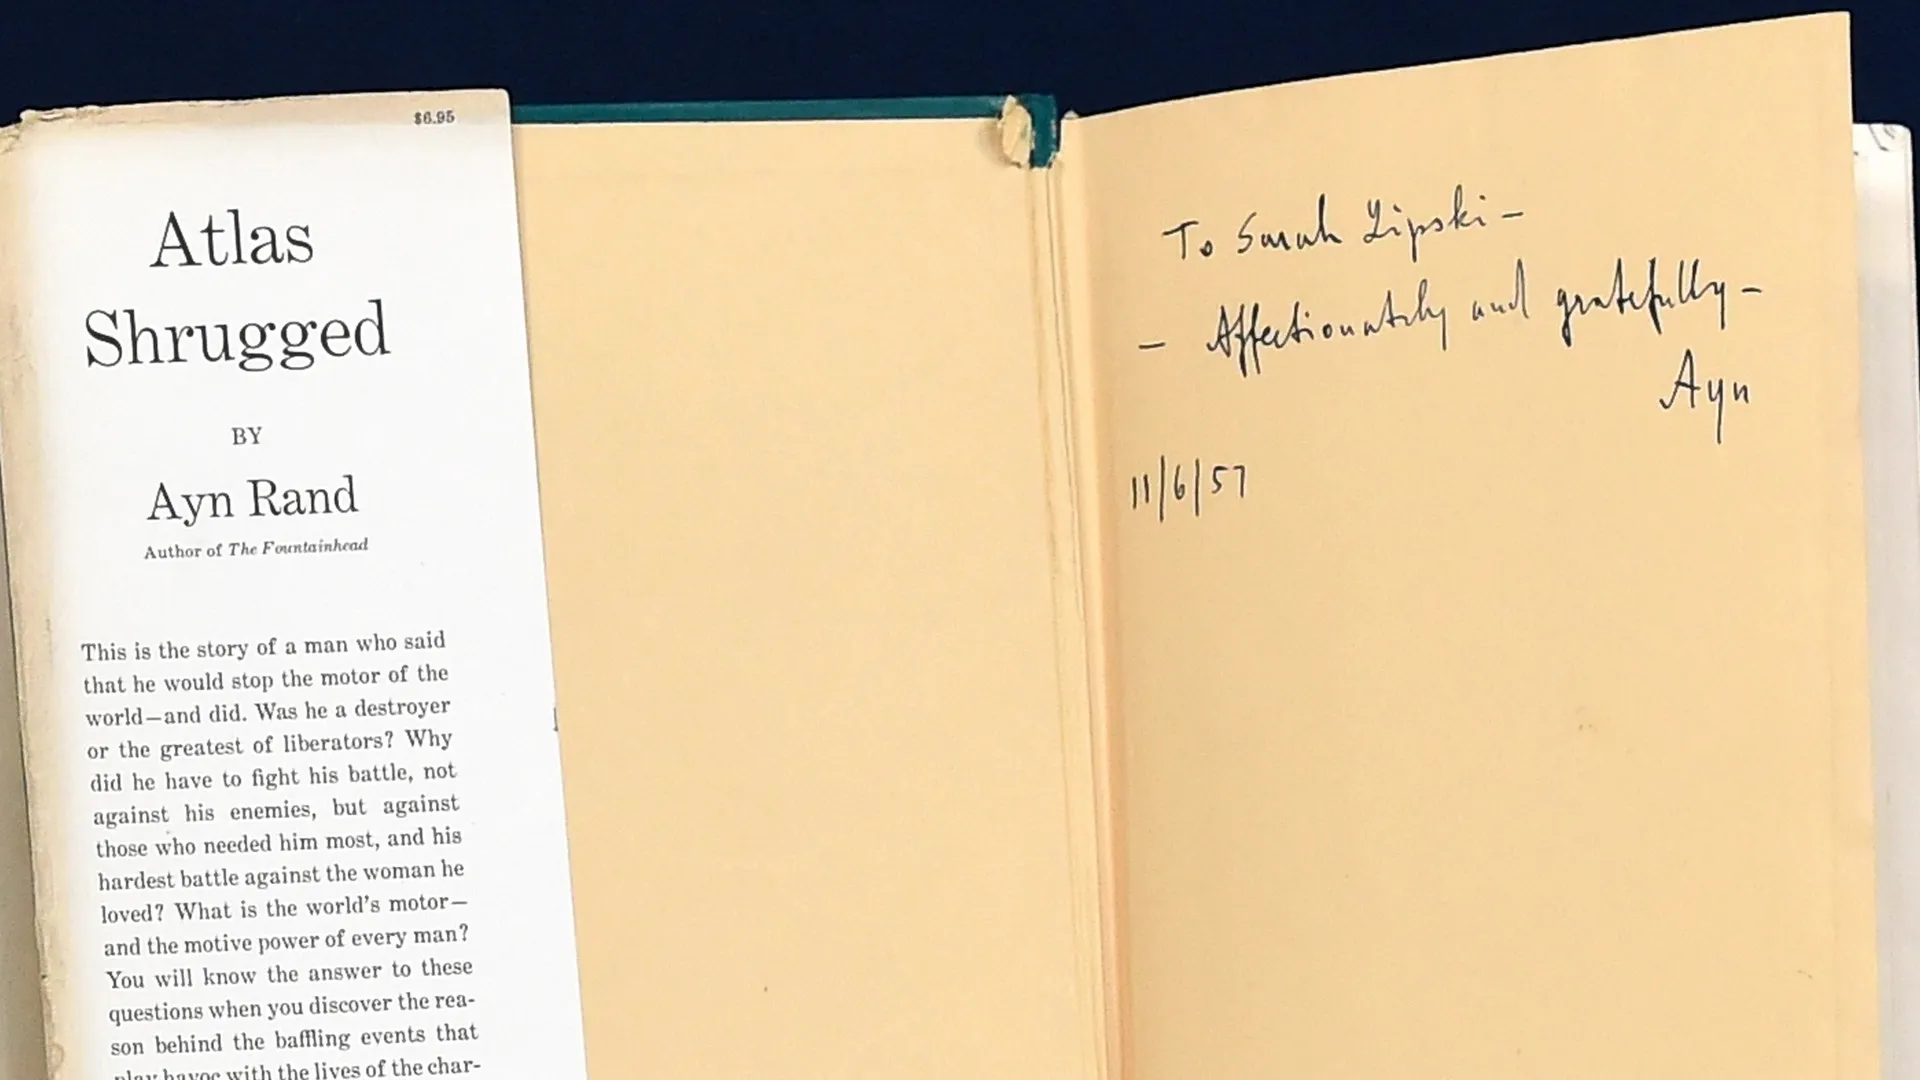 $6.95
Atlas
Shrugged
BY
Ayn Rand
Author of The Fountainhead
This is the story of a man who said
that he would stop the motor of the
world—and did. Was he a destroyer
or the greatest of liberators? Why
did he have to fight his battle, not
against his enemies, but against
those who needed him most, and his
hardest battle against the woman he
loved? What is the world's motor—
and the motive power of every man?
You will know the answer to these
questions when you discover the rea-
son behind the baffling events that
play havoc with the lives of the char-
To Sarah Lipski —
— Affectionately and gratefully —
Ayn
11/6/57